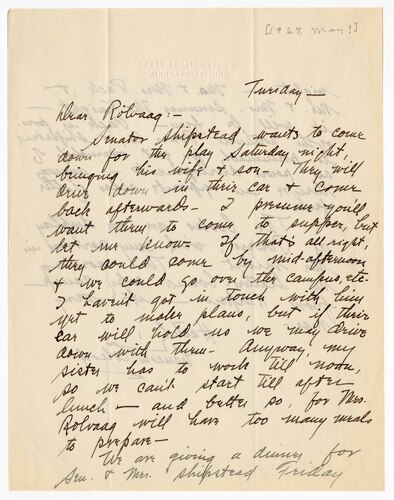 [1927, Mar?]
MINNEAPOLIS, MINN.
Tuesday —
Dear Rölvaag: —
Senator Shipstead wants to come
down for the play Saturday night,
bringing his wife & son — They will
drive down in their car & come
back afterwards — I presume you'll
want them to come to supper, but
let me know — If that's all right,
they could come by mid-afternoon
& we could go over the campus, etc.
I haven't got in touch with him
yet to make plans, but if their
car will hold us we may drive
down with them — Anyway, my
sister has to work till noon,
so we can't start till after
lunch — and better so, for Mrs.
Rolvaag will have too many meals
to prepare —
We are giving a dinner for
Sen. & Mrs. Shipstead Friday